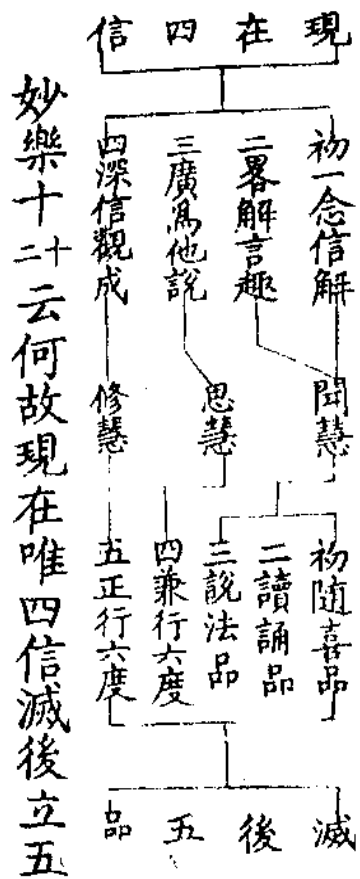 現在四信
初一念信解
二畧解言趣
三廣爲他說
四深信觀成
聞慧
思慧
修慧
初隨喜品
二讀誦品
三說法品
四兼行六度
五正行六度
滅後五品
妙樂十二十云何故現在唯四信滅後立五